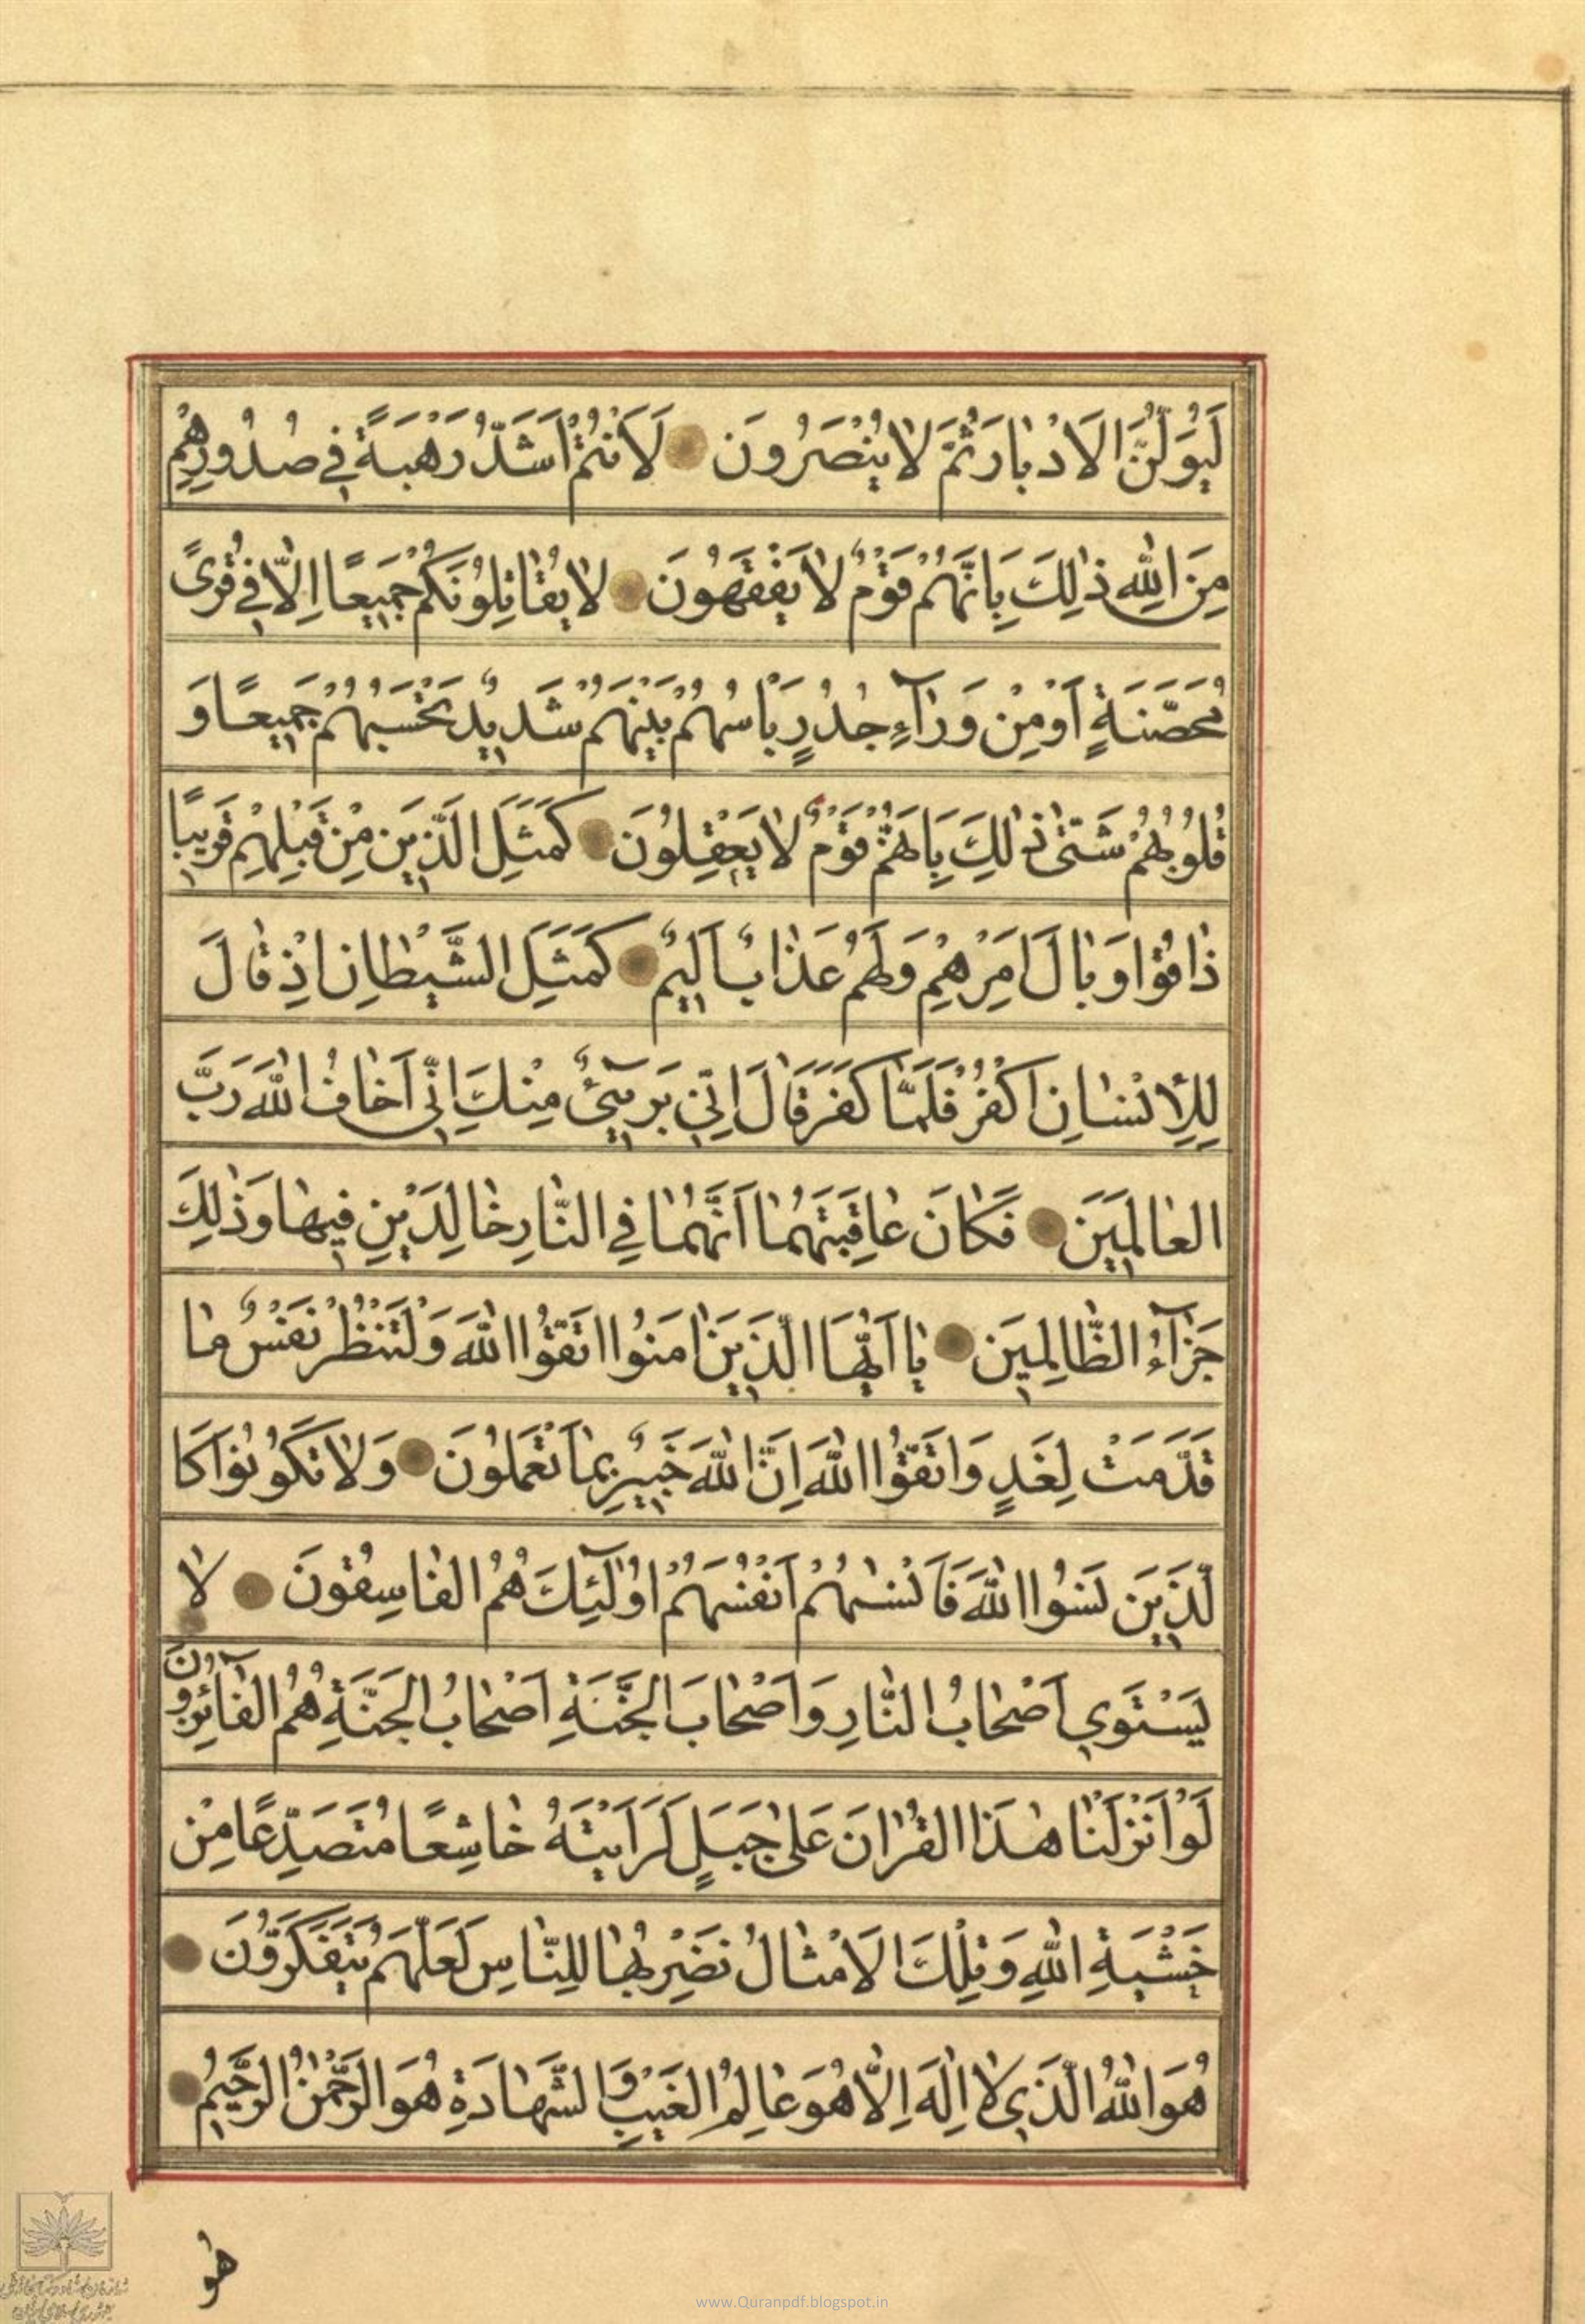 لَيُوَلُّنَّ الاَدْبارَ ثُمَّ لا يُنْصَرُونَ لَاَنْتُمْ اَشَدُّ رَهْبَةً في صُدُورِهِمْ
مِنَ اللهِ ذٰلِكَ بِاَنَّهُمْ قَوْمٌ لا يَفْقَهُونَ لا يُقاتِلُونَكُمْ جَميعًا اِلّا في قُرىً
مُحَصَّنَةٍ اَوْ مِنْ وَرآءِ جُدُرٍ بَاْسُهُمْ بَيْنَهُمْ شَديدٌ تَحْسَبُهُمْ جَميعًا وَ
قُلُوبُهُمْ شَتّىٰ ذٰلِكَ بِاَنَّهُمْ قَوْمٌ لا يَعْقِلُونَ كَمَثَلِ الَّذينَ مِنْ قَبْلِهِمْ قَريبًا
ذاقُوا وَبالَ اَمْرِهِمْ وَلَهُمْ عَذابٌ اَليمٌ كَمَثَلِ الشَّيْطانِ اِذْ قالَ
لِلْاِنْسانِ اكْفُرْ فَلَمّا كَفَرَ قالَ اِنّي بَريٓءٌ مِنْكَ اِنّي اَخافُ اللهَ رَبَّ
العالَمينَ فَكانَ عاقِبَتَهُما اَنَّهُما فِي النّارِ خالِدَيْنِ فيها وَذٰلِكَ
جَزآءُ الظّالِمينَ يا اَيُّهَا الَّذينَ اٰمَنُوا اتَّقُوا اللهَ وَلْتَنْظُرْ نَفْسٌ ما
قَدَّمَتْ لِغَدٍ وَاتَّقُوا اللهَ اِنَّ اللهَ خَبيرٌ بِما تَعْمَلُونَ وَلا تَكُونُوا كَا
لَّذينَ نَسُوا اللهَ فَاَنْسٰيهُمْ اَنْفُسَهُمْ اُولٰٓئِكَ هُمُ الفاسِقُونَ لا
يَسْتَوي اَصْحابُ النّارِ وَاَصْحابُ الجَنَّةِ اَصْحابُ الجَنَّةِ هُمُ الفآئِزُونَ
لَوْ اَنْزَلْنا هٰذَا القُرْاٰنَ عَلىٰ جَبَلٍ لَرَاَيْتَهُ خاشِعًا مُتَصَدِّعًا مِنْ
خَشْيَةِ اللهِ وَتِلْكَ الاَمْثالُ نَضْرِبُها لِلنّاسِ لَعَلَّهُمْ يَتَفَكَّرُونَ
هُوَ اللهُ الَّذي لا اِلٰهَ اِلّا هُوَ عالِمُ الغَيْبِ وَالشَّهادَةِ هُوَ الرَّحْمٰنُ الرَّحيمُ
هُو
www.Quranpdf.blogspot.in